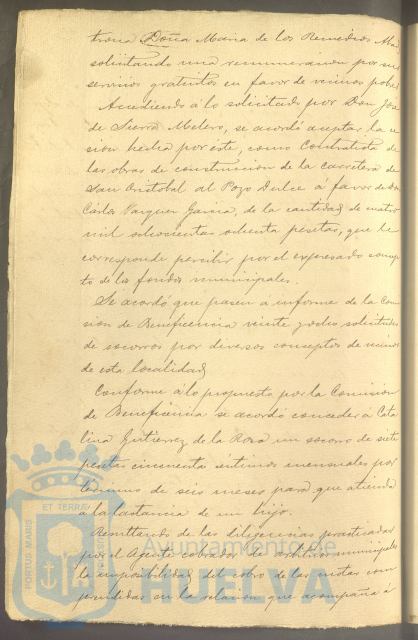 trona Doña Maria de los Remedios
solicitando una remuneracion por sus
servicios gratuitos en favor de vecinos pobres
Accediendo á lo solicitado por Don José
de Sierra Melero, se acordó aceptar la ce
sion hecha por este, como Contratista de
las obras de construccion de la carretera de
San Cristobal al Pozo Dulce á favor de Don
Carlos Vazquez Garcia, de la cantidad de cuatro
mil ochocientas ochenta pesetas, que le
corresponde percibir por el expresado concep
to de los fondos municipales.
Se acordó que pasen á informe de la Comi
sion de Beneficencia veinte y ocho solicitudes
de socorros por diversos conceptos de vecinos
de esta localidad
Conforme á lo propuesto por la Comision
de Beneficencia se acordó conceder á Cata
lina Gutierrez de la Rosa un socorro de siete
pesetas cincuenta céntimos mensuales por
término de seis meses para que atienda
á la lactancia de un hijo.
Resultando de las diligencias practicadas
por el Agente cobrador de arbitrios municipales
la imposibilidad del cobro de las cuotas com
prendidas en la relacion que acompaña á
PORTUS MARIS ET TERRÆ
Ayuntamiento de
HUELVA